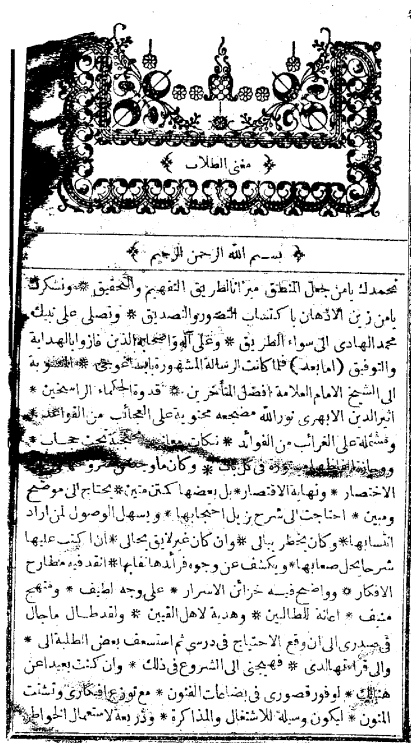 ﴿ مغنى الطلاب ﴾
﴿ بسم الله الرحمن الرحيم ﴾
نحمدك يامن جعل المنطق ميزانا لطريق التفهيم والتحقيق * ونشكرك
يامن زين الاذهان باكتساب التصور والتصديق * ونصلى على نبيك
محمد الهادى الى سواء الطريق * وعلى آله واصحابه الذين فازوا بالهداية
والتوفيق (اما بعد) فلما كانت الرسالة المشهورة بايساغوجى * المنسوبة
الى الشيخ الامام العلامة افضل المتأخرين * قدوة الحكماء الراسخين *
اثير الدين الابهرى نور الله مضجعه محتوية على العجائب من القواعد *
ومشتملة على الغرائب من الفوائد * نكات معانيها تحت حجاب *
مستورة فى كل باب * وكان
الاختصار * ونهاية الاقتصار * بل بعضها كمتن متين * يحتاج الى موضح
ومبين * احتاجت الى شرح يزيل احتجابها * ويسهل الوصول لمن اراد
انتسابها * وكان يخطر ببالى * وان كان غير لايق بحالى * ان اكتب عليها
شرحا يحل صعابها * ويكشف عن وجوه فرائدها نقابها * انقد فيه مطارح
الافكار * وواضح فيه خزائن الاسرار * على وجه لطيف * ومنهج
منيف * اعانة للطالبين * وهدية لاهل اليقين * ولقد طال ماجال
فى صدرى الى ان وقع الاحتياج فى درسى ثم استسعف بعض الطلبة الى *
والى قراءتها لدى * فهيجنى الى الشروع فى ذلك * وان كنت بعيدا عن
هنالك * لوفور قصورى فى بضاعات الفنون * مع توزع افكارى وتشتت
المتون * ليكون وسيلة للاشتغال والمذاكرة * وذريعة لاستعمال الخواطر